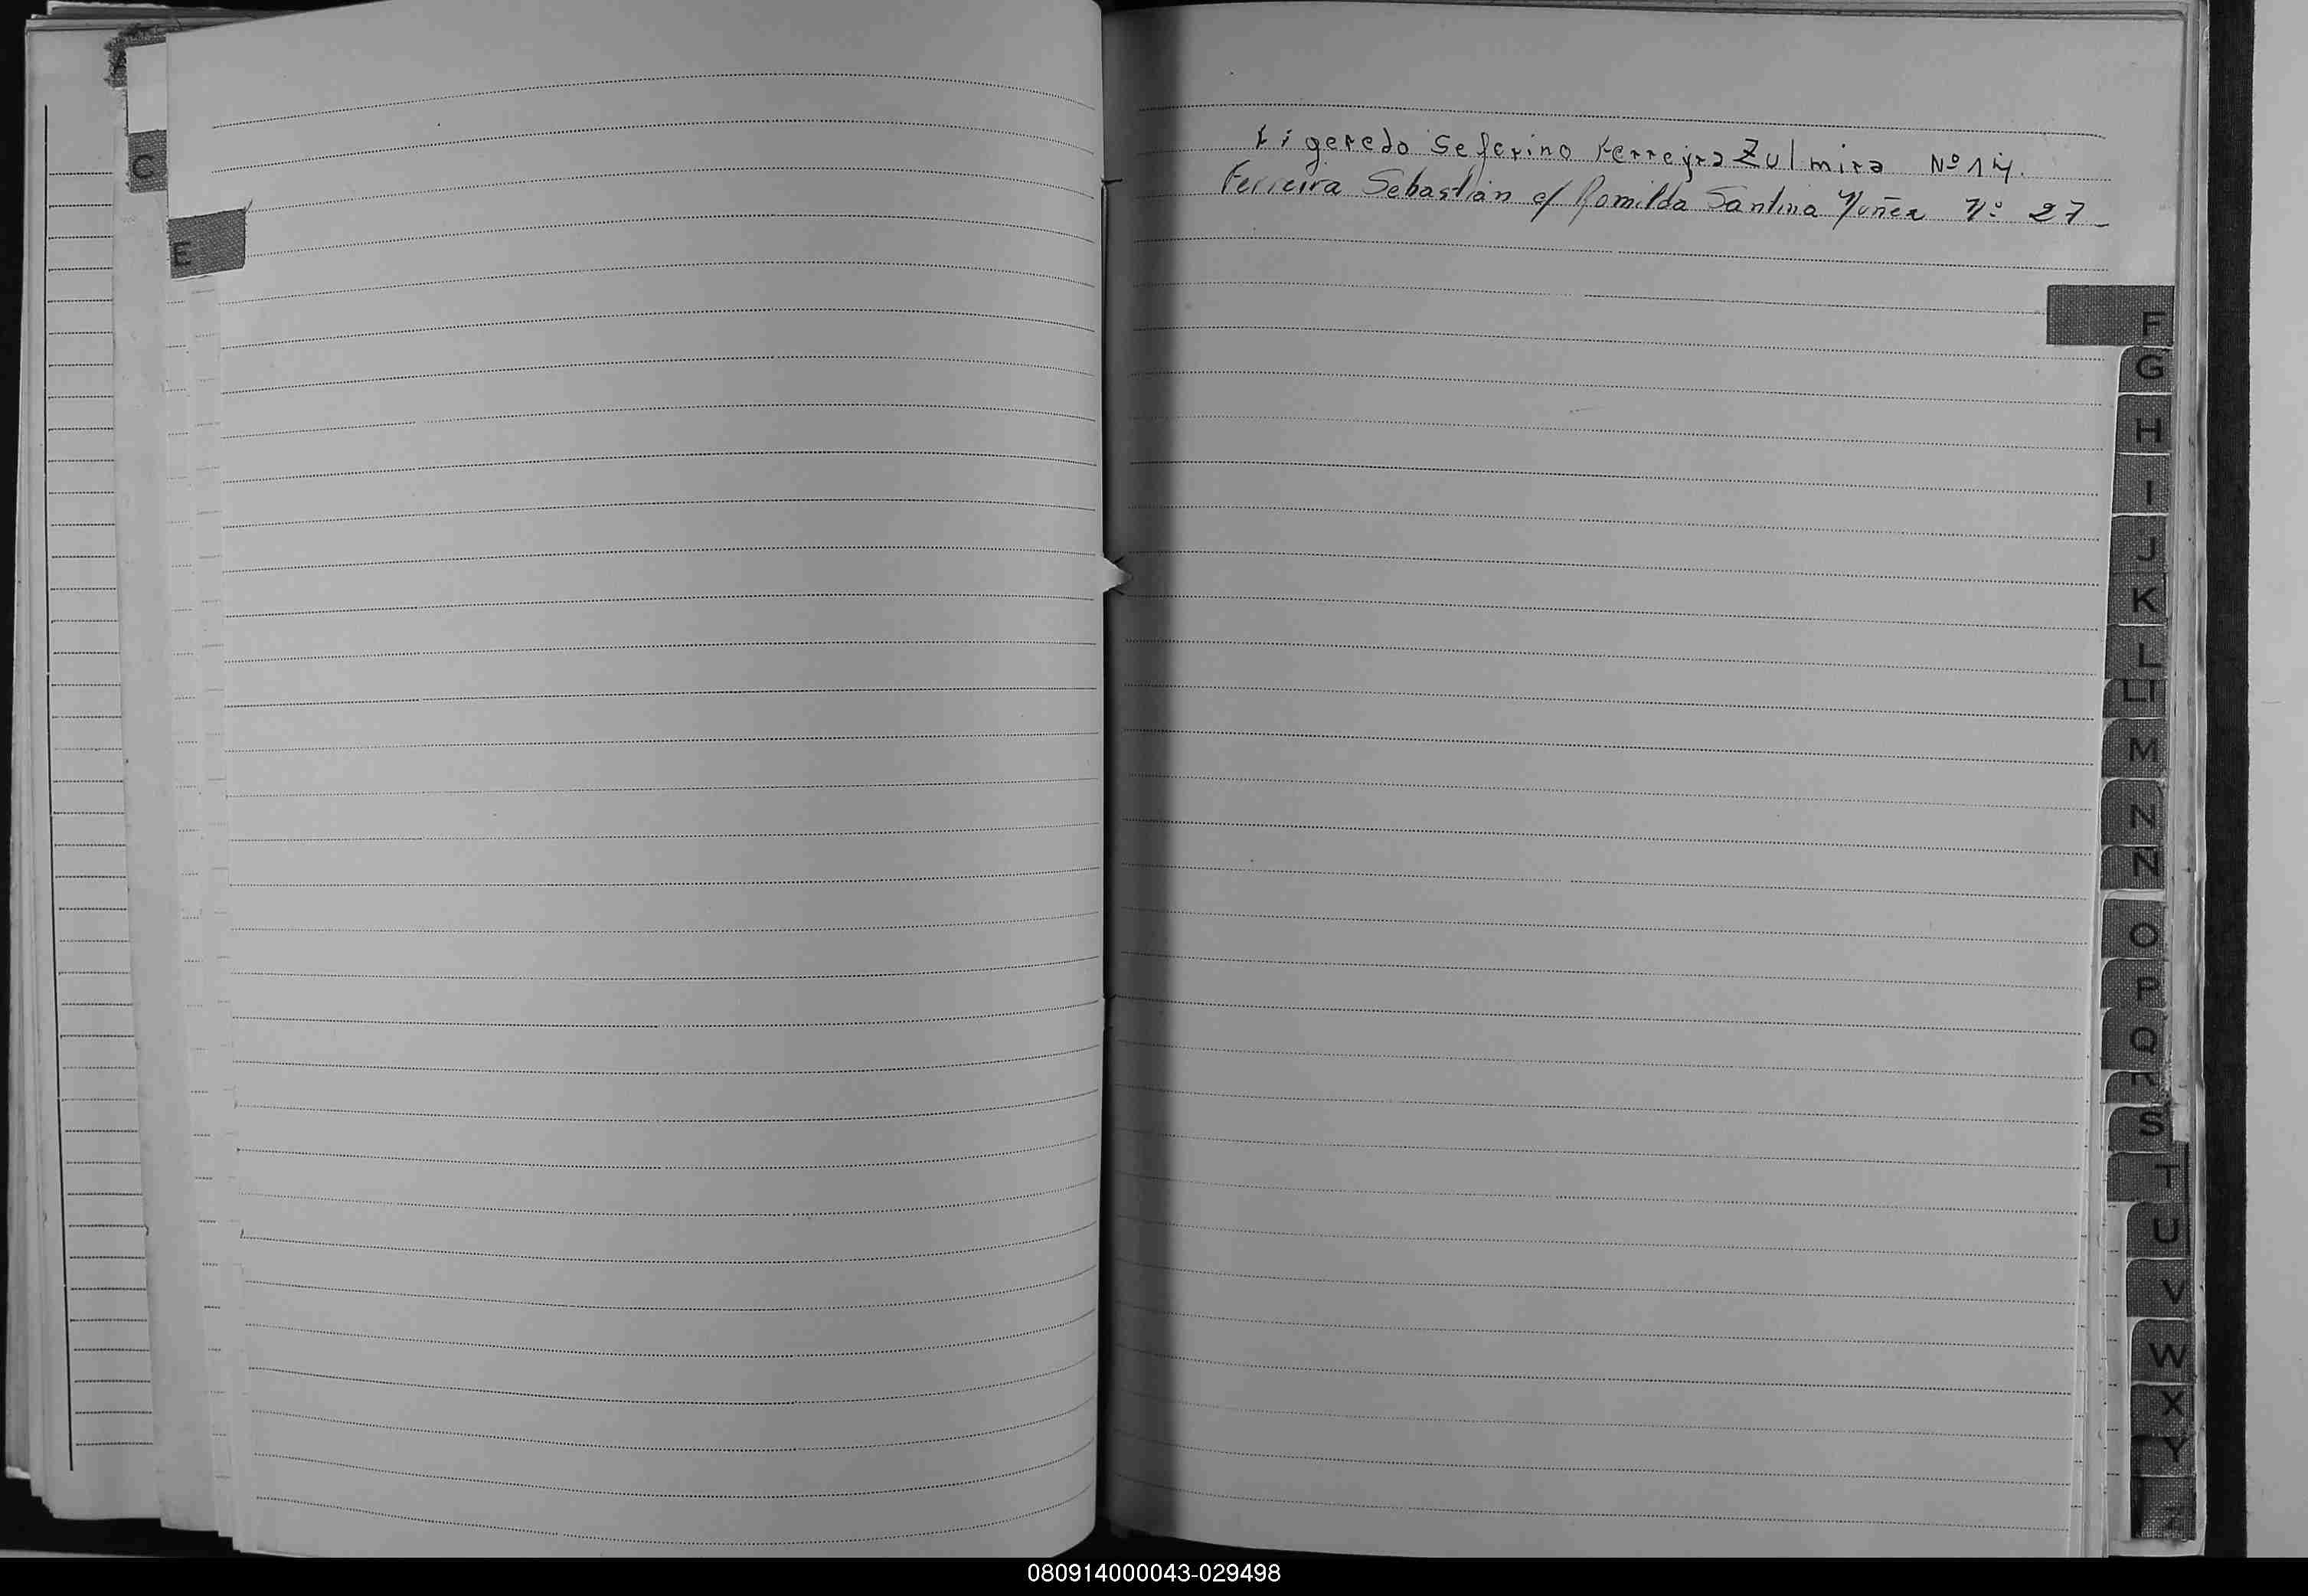 C
E
Figeredo Seferino Ferreyra Zulmira Nº 14.
Ferreira Sebastián c/ Romilda Santina Nuñez Nº 27
F
G
H
I
J
K
L
Ll
M
N
Ñ
O
P
Q
R
S
T
U
V
W
X
Y
Z
080914000043-029498